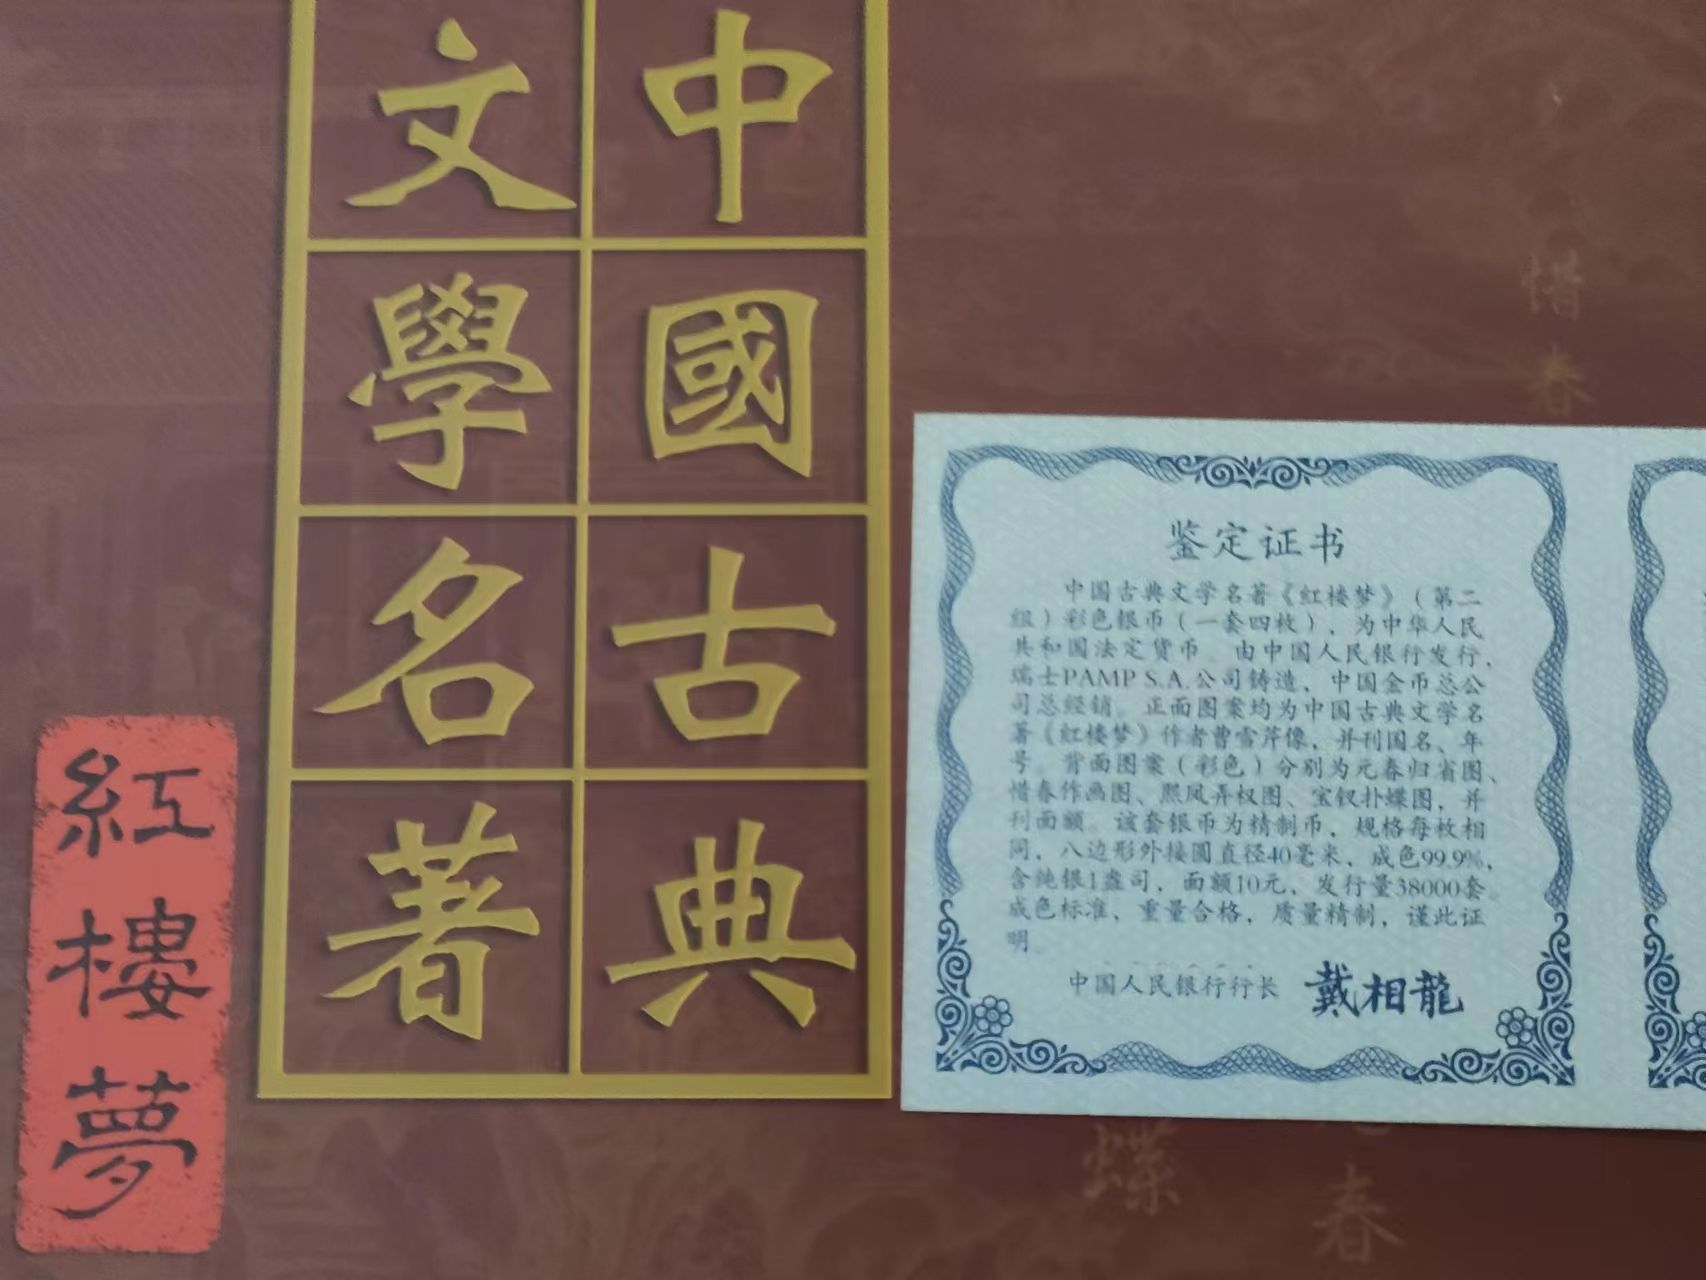 中國古典
文學名著
紅樓夢
惜春
鉴定证书
中国古典文学名著《红楼梦》（第二
组）彩色银币（一套四枚），为中华人民
共和国法定货币。由中国人民银行发行，
瑞士PAMP S.A.公司铸造，中国金币总公
司总经销。正面图案均为中国古典文学名
著《红楼梦》作者曹雪芹像，并刊国名、年
号。背面图案（彩色）分别为元春归省图、
惜春作画图、熙凤弄权图、宝钗扑蝶图，并
刊面额。该套银币为精制币，规格每枚相
同，八边形外接圆直径40毫米，成色99.9%，
含纯银1盎司，面额10元，发行量38000套。
成色标准，重量合格，质量精制，谨此证
明。
中国人民银行行长 戴相龍
蝶
春